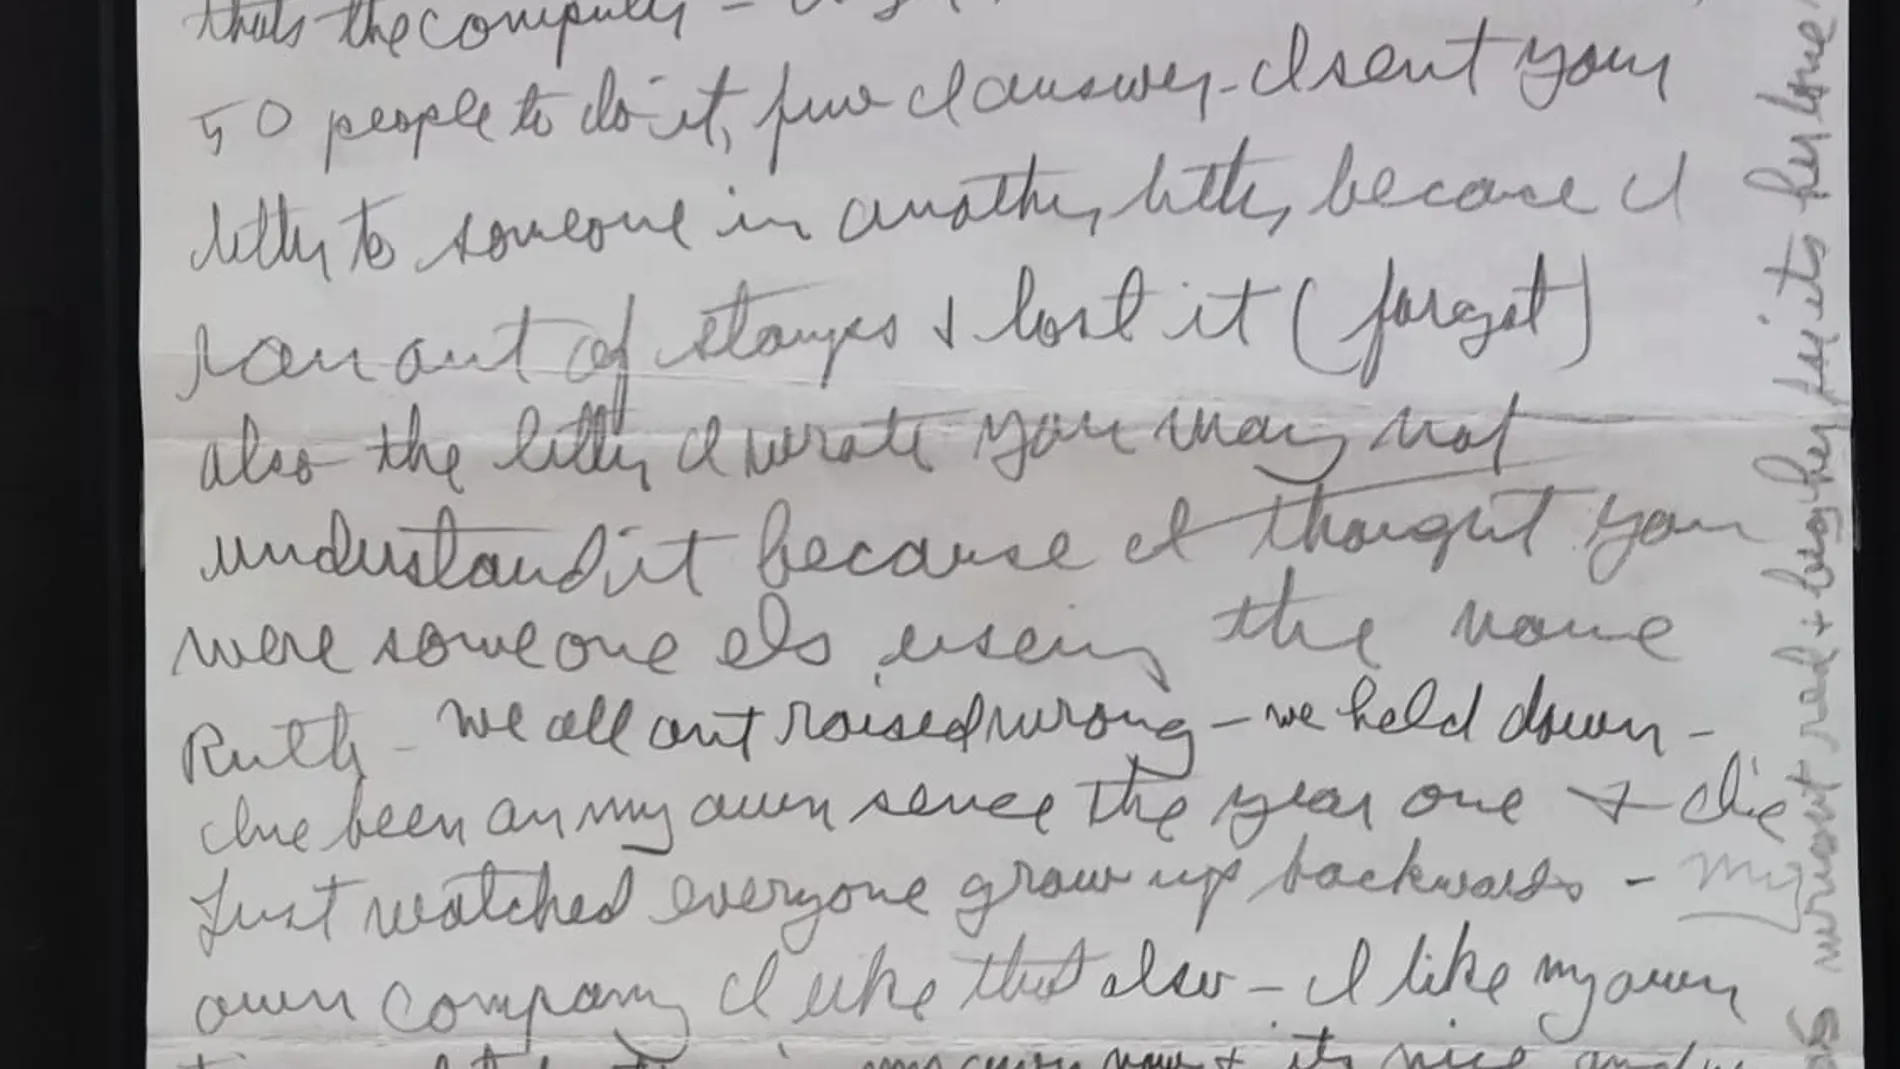 thats the computer -
50 people to do it, few I answer - I sent your
letter to someone in another letter, because I
ran out of stamps & lost it (forgot)
also the letter I wrote you may not
understand it because I thought you
were someone els useing the name
Ruth - we all ant raised wrong - we held down -
Ive been on my own sence the year one & Ive
Just watched everyone grow up backwards - My
own company I like that also - I like my own
now & its nice
wrout red + her for its her love